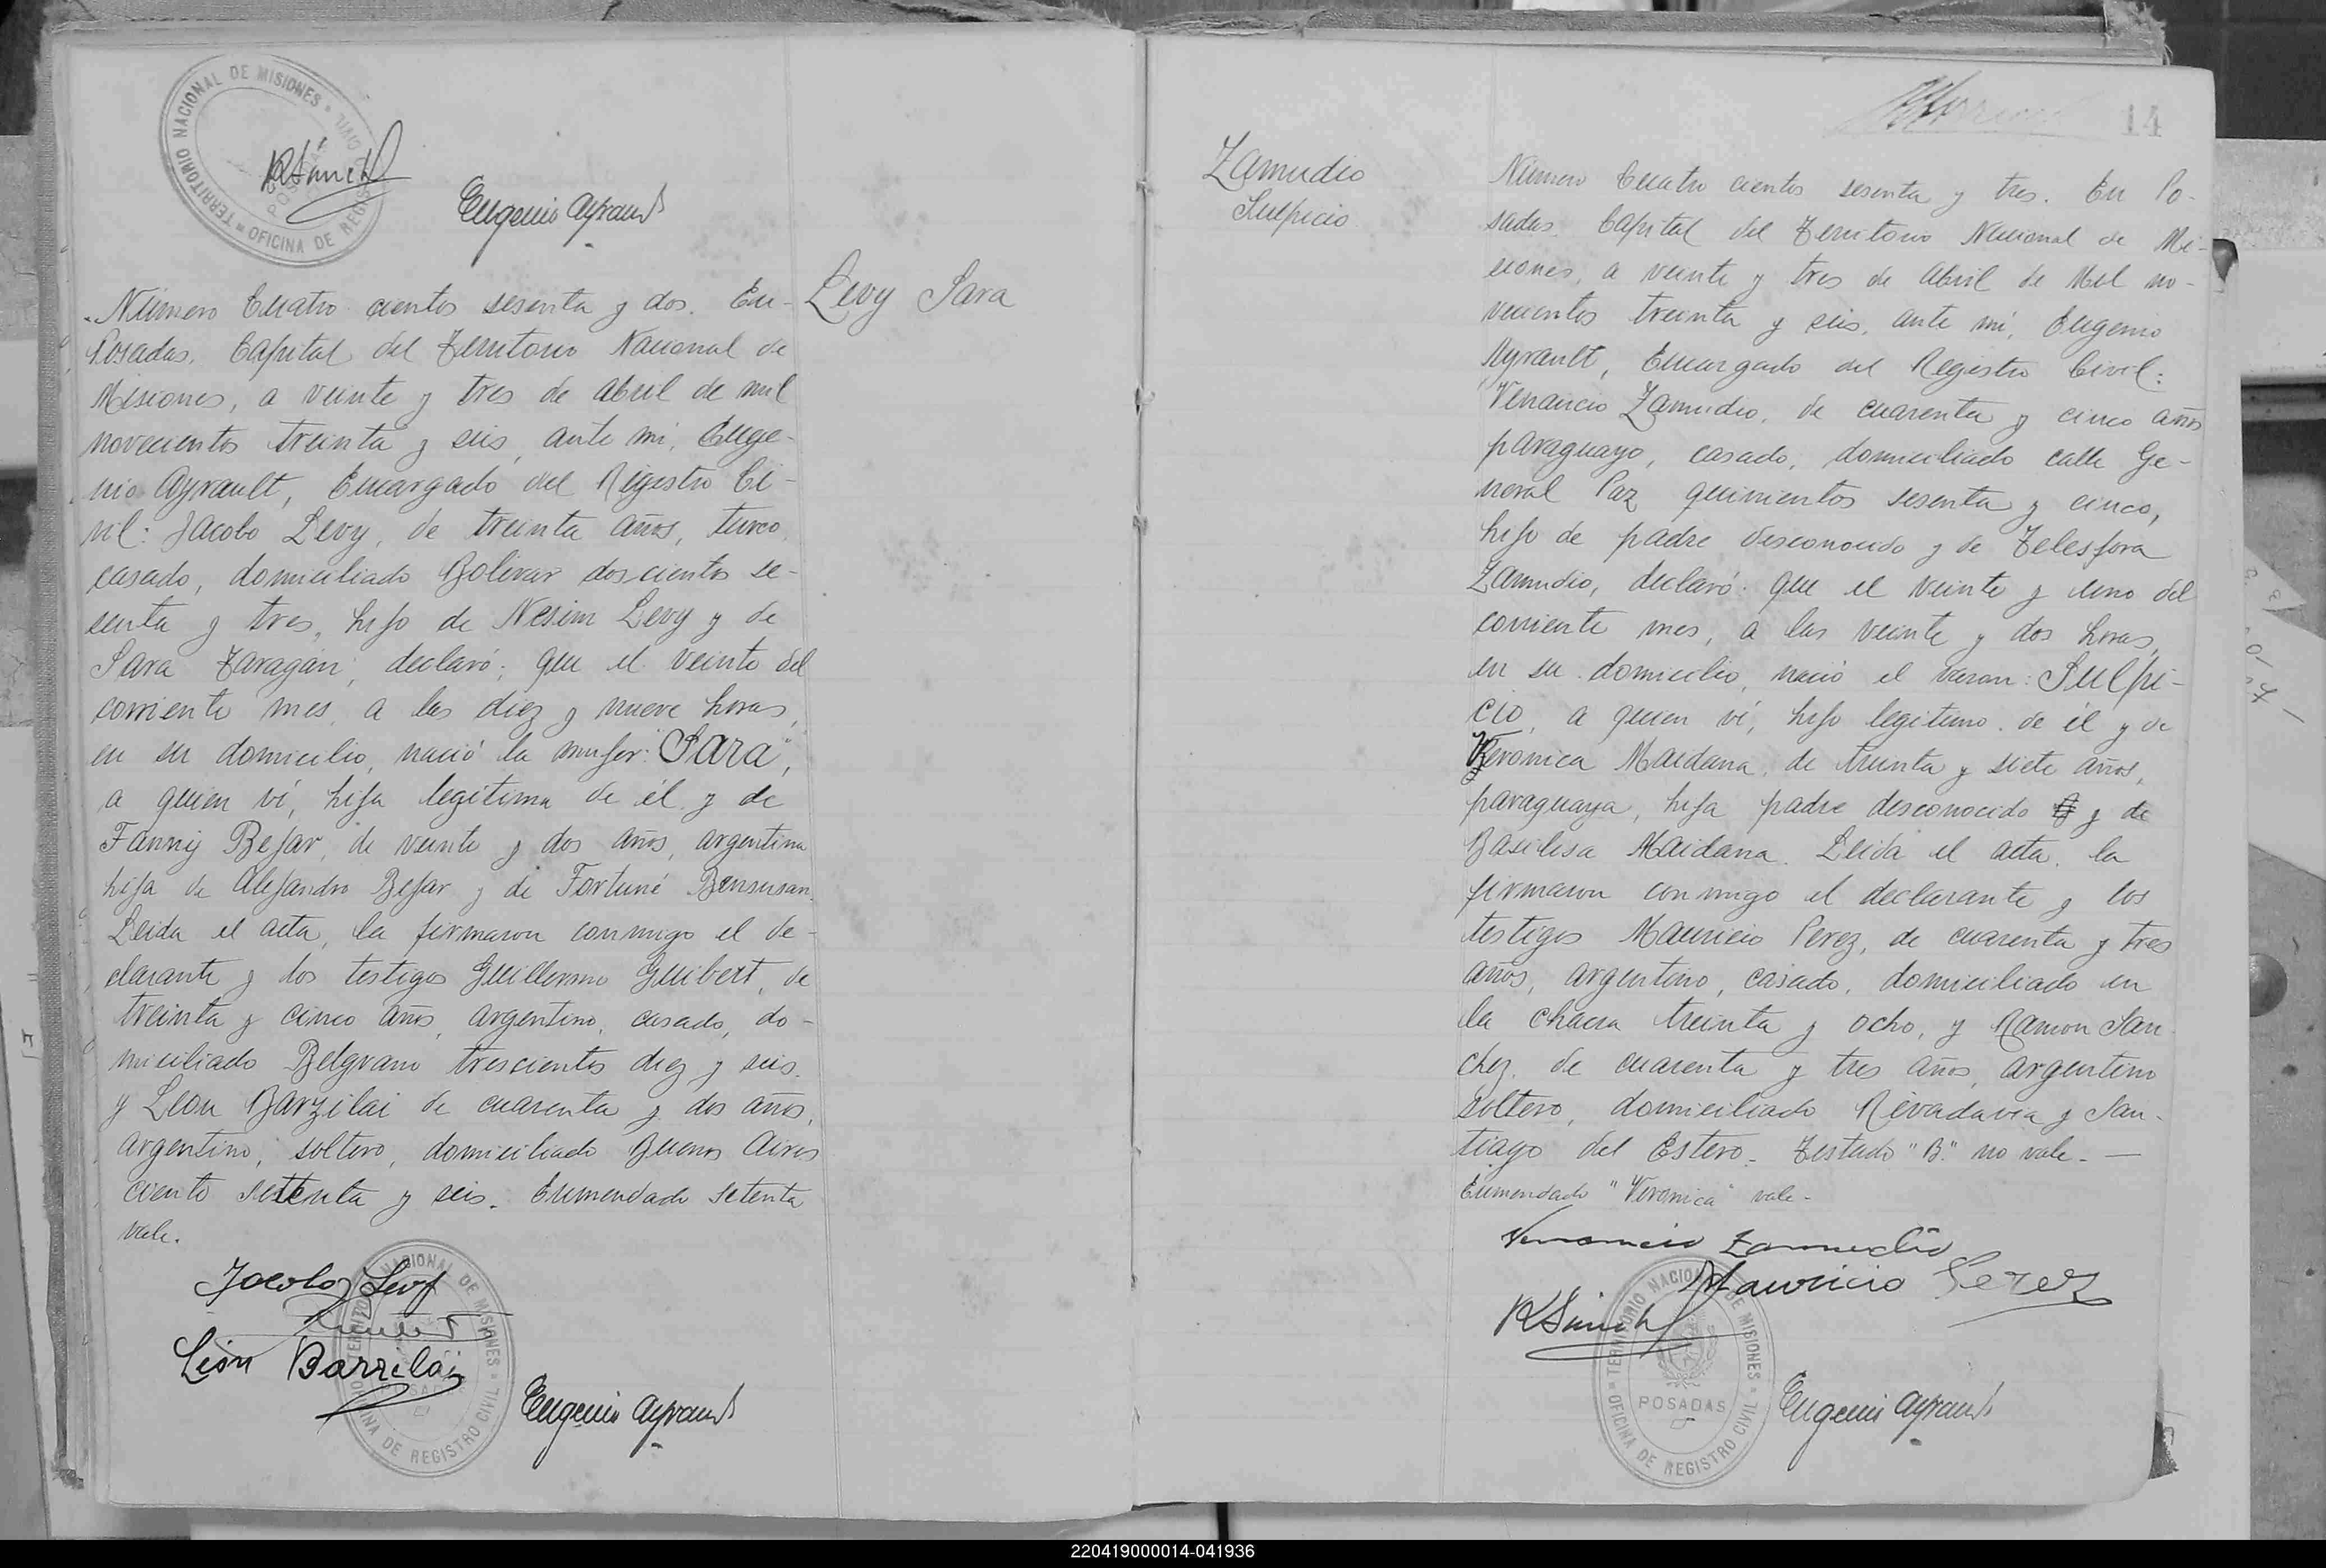 TERRITORIO NACIONAL DE MISIONES
OFICINA DE REGISTRO CIVIL
POSADAS
Eugenio Ayrault
Levy Sara
Número Cuatro cientos sesenta y dos. En
Posadas, Capital del Territorio Nacional de
Misiones, a veinte y tres de abril de mil
novecientos treinta y seis, ante mí, Euge-
nio Ayrault, Encargado del Registro Ci-
vil: Jacobo Levy, de treinta años, turco,
casado, domiciliado Bolivar doscientos se-
senta y tres, hijo de Nesim Levy y de
Sara Taragán, declaró: que el veinte del
corriente mes, a las diez y nueve horas,
en su domicilio, nació la mujer: "Sara",
a quien ví, hija legítima de él y de
Fanny Bejar, de veinte y dos años, argentina
hija de Alejandro Bejar y de Fortuné Bensusan.
Leida el acta, la firmaron conmigo el de-
clarante y los testigos Guillermo Guibert, de
treinta y cinco años, argentino, casado, do-
miciliado Belgrano trescientos diez y seis.
y León Barzilai de cuarenta y dos años,
argentino, soltero, domiciliado Buenos Aires
ciento setenta y seis. Enmendado setenta
vale.
Jacobo Levy
León Barzilai
Eugenio Ayrault
TERRITORIO NACIONAL DE MISIONES
OFICINA DE REGISTRO CIVIL
14
Zamudio
Sulpicio
Número Cuatro cientos sesenta y tres. En Po-
sadas. Capital del Territorio Nacional de Mi-
siones, a veinte y tres de abril de Mil no-
vecientos treinta y seis, ante mí, Eugenio
Ayrault, Encargado del Registro Civil:
Venancio Zamudio, de cuarenta y cinco años
paraguayo, casado, domiciliado calle Ge-
neral Paz quinientos sesenta y cinco,
hijo de padre desconocido y de Telesfora
Zamudio, declaró: que el veinte y uno del
corriente mes, a las veinte y dos horas,
en su domicilio, nació el varon: Sulpi-
cio, a quien ví, hijo legitimo de él y de
Veronica Maidana, de treinta y siete años,
paraguaya, hija padre desconocido y de
Basilisa Maidana. Leida el acta, la
firmaron conmigo el declarante y los
testigos Mauricio Perez, de cuarenta y tres
años, argentino, casado, domiciliado en
la chacra treinta y ocho, y Ramon San
chez, de cuarenta y tres años, argentino
soltero, domiciliado Rivadavia y San-
tiago del Estero. Testado "B." no vale. —
Enmendado "Veronica" vale.
Venancio Zamudio
Mauricio Perez
Eugenio Ayrault
TERRITORIO NACIONAL DE MISIONES
POSADAS
OFICINA DE REGISTRO CIVIL
220419000014-041936